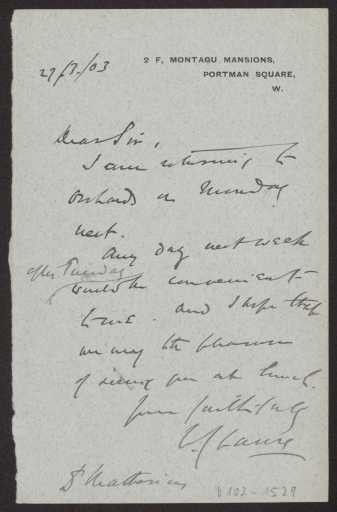 2 F, MONTAGU MANSIONS,
PORTMAN SQUARE,
W.
Dear Sir,
I am returning to
Orchards on Monday
next.
Any day next week
after Tuesday
would be convenient
to me. and I hope that
we may the pleasure
of seeing you at lunch.
yours faithfully